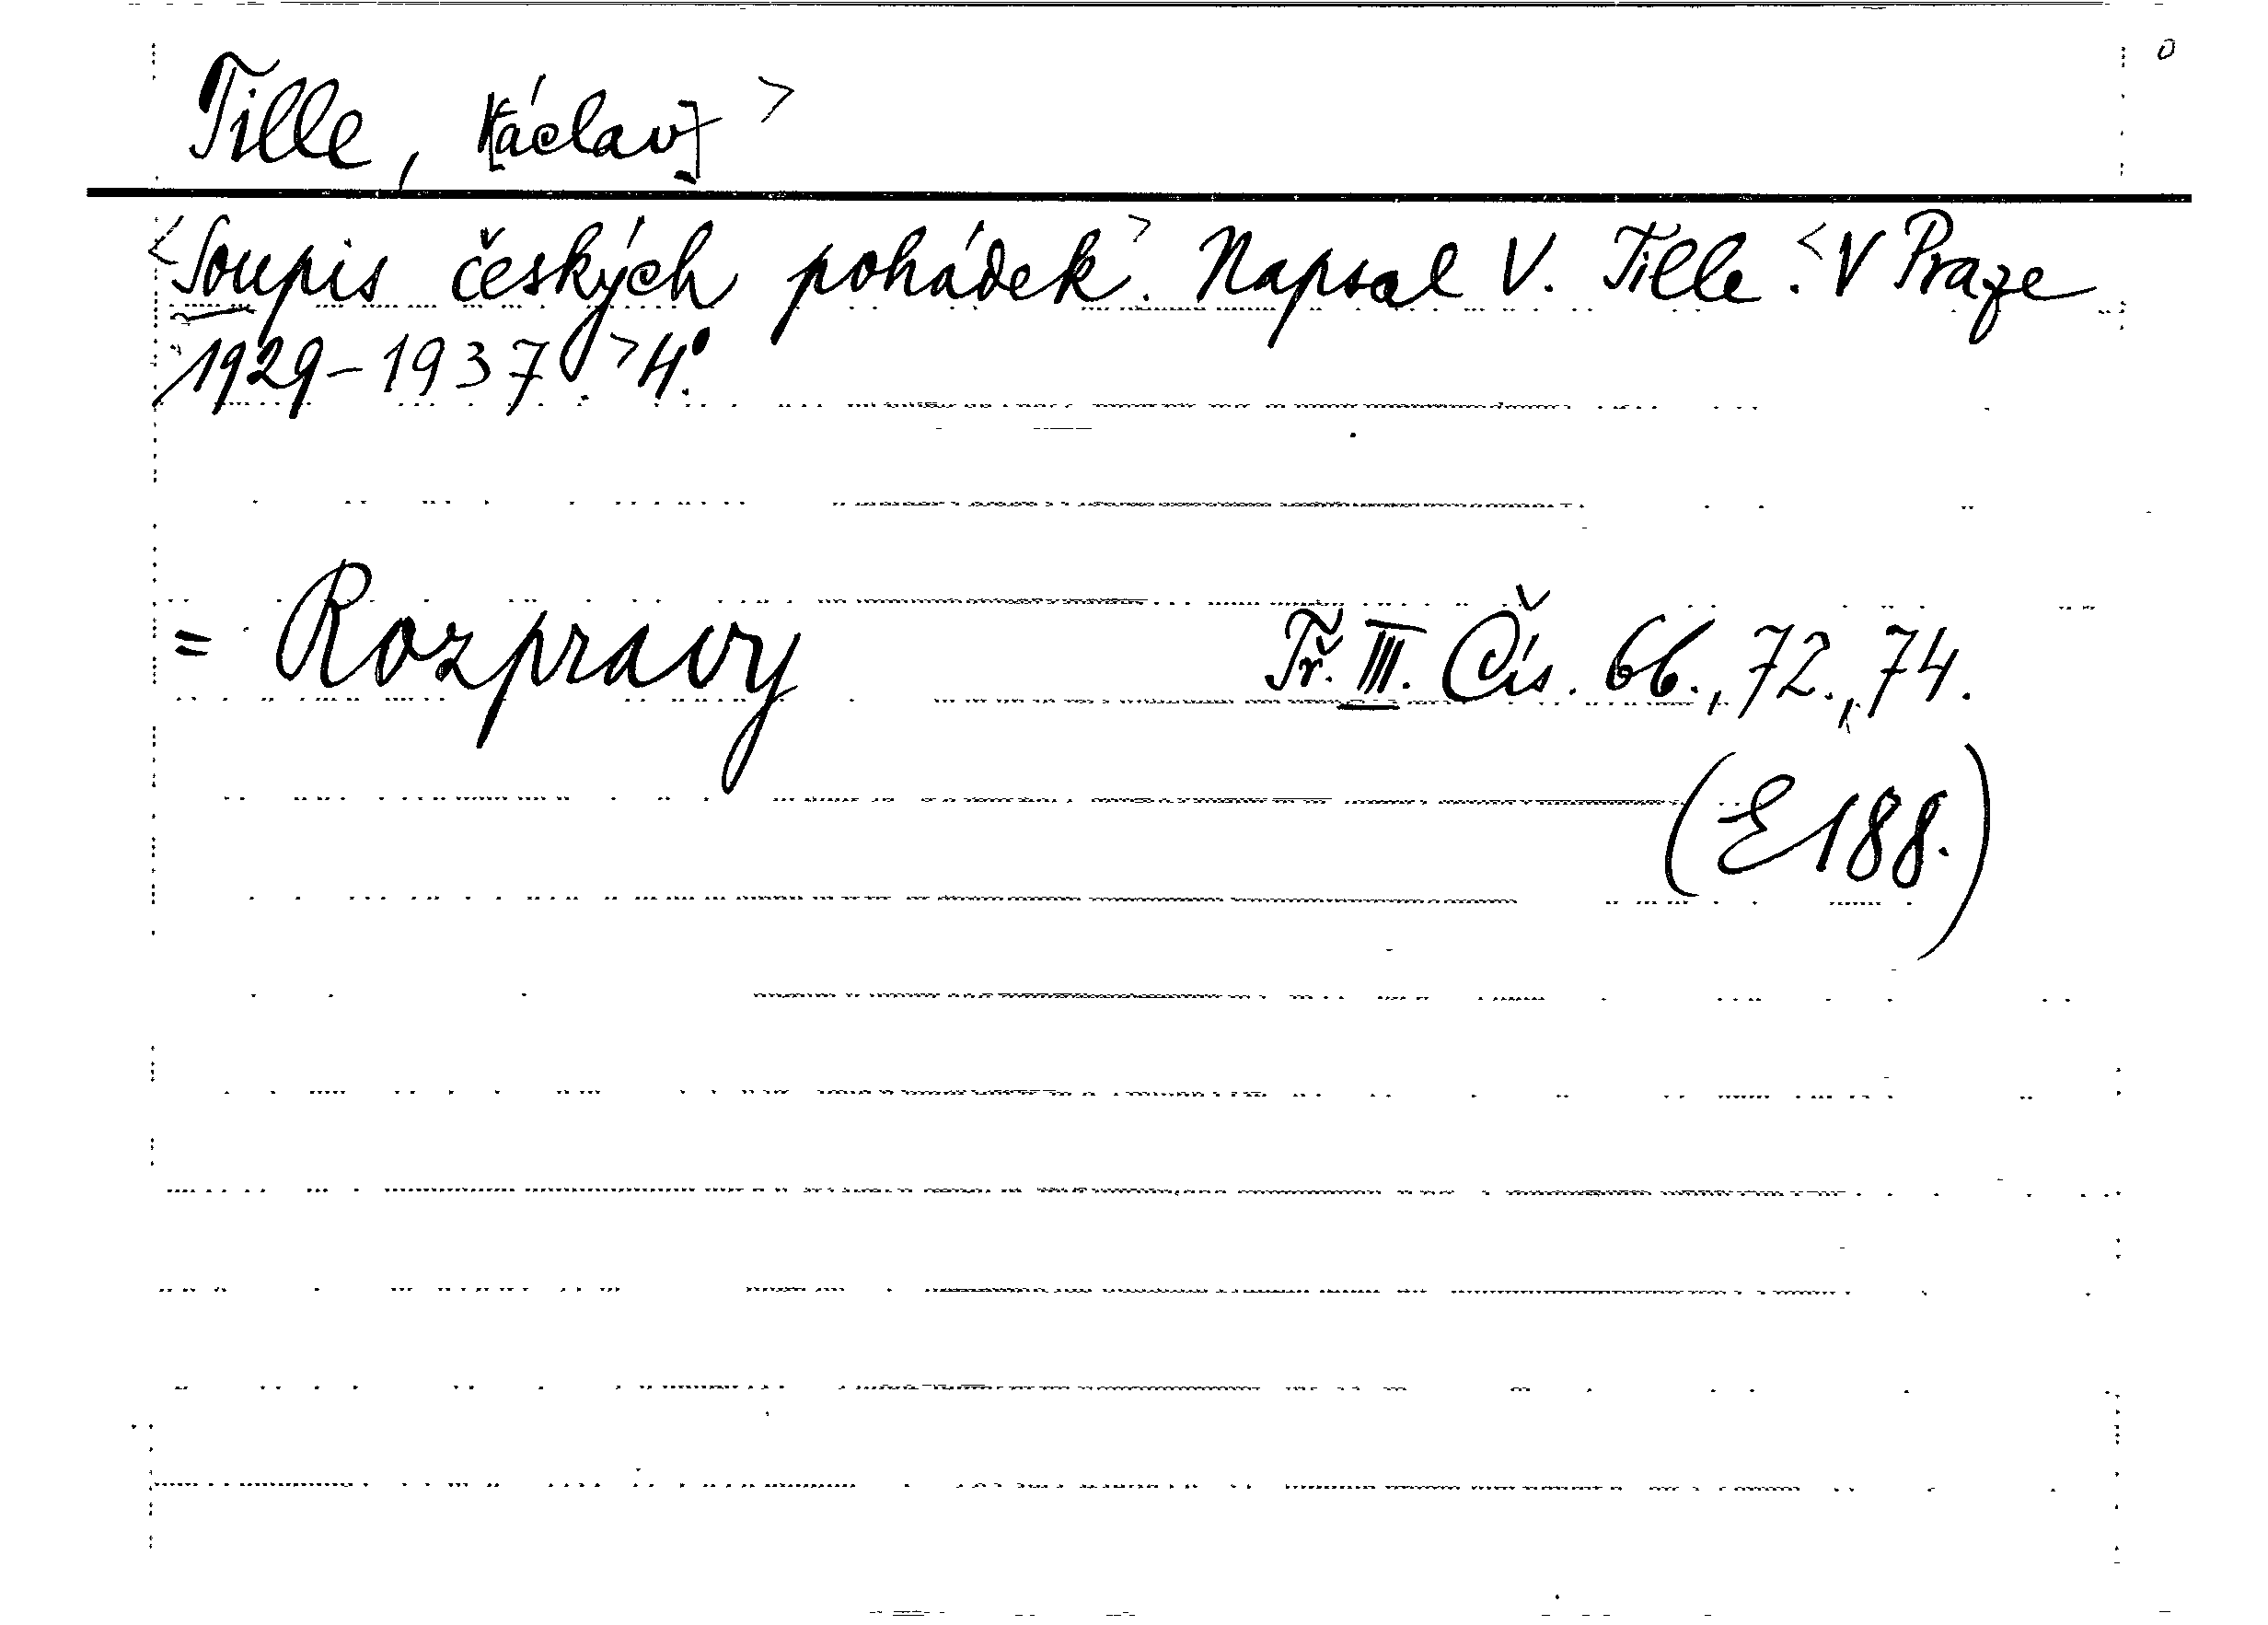 Tille, V[áclav] >
<Soupis českých pohádek.> Napsal V. Tille. <V Praze
1929-1937.> 4°.
= Rozpravy Tř. III. Čís. 66., 72., 74.
(E 188.)